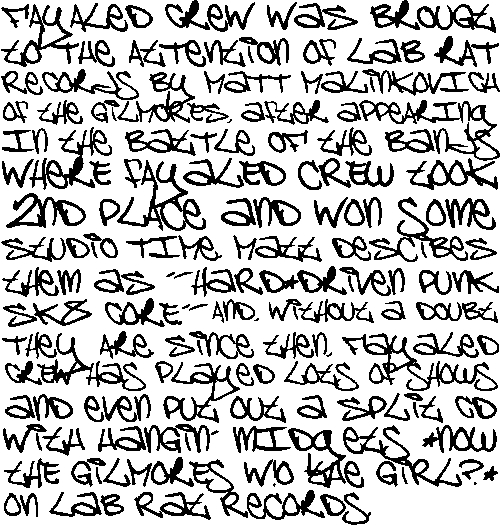 Fayaled Crew was brougt
to the attention of Lab Rat
Records by Matt Malinkovich
of the Gilmores, after appearing
in the Battle of the Bands
where Fayaled Crew took
2nd place and won some
studio time. Matt descibes
them as "hard*driven punk
sk8 core" and, without a doubt
they are. Since then, Fayaled
Crew has played lots of shows
and even put out a split CD
with Hangin' Midgets *now
the Gilmores w/o the girl?*
on Lab Rat Records.